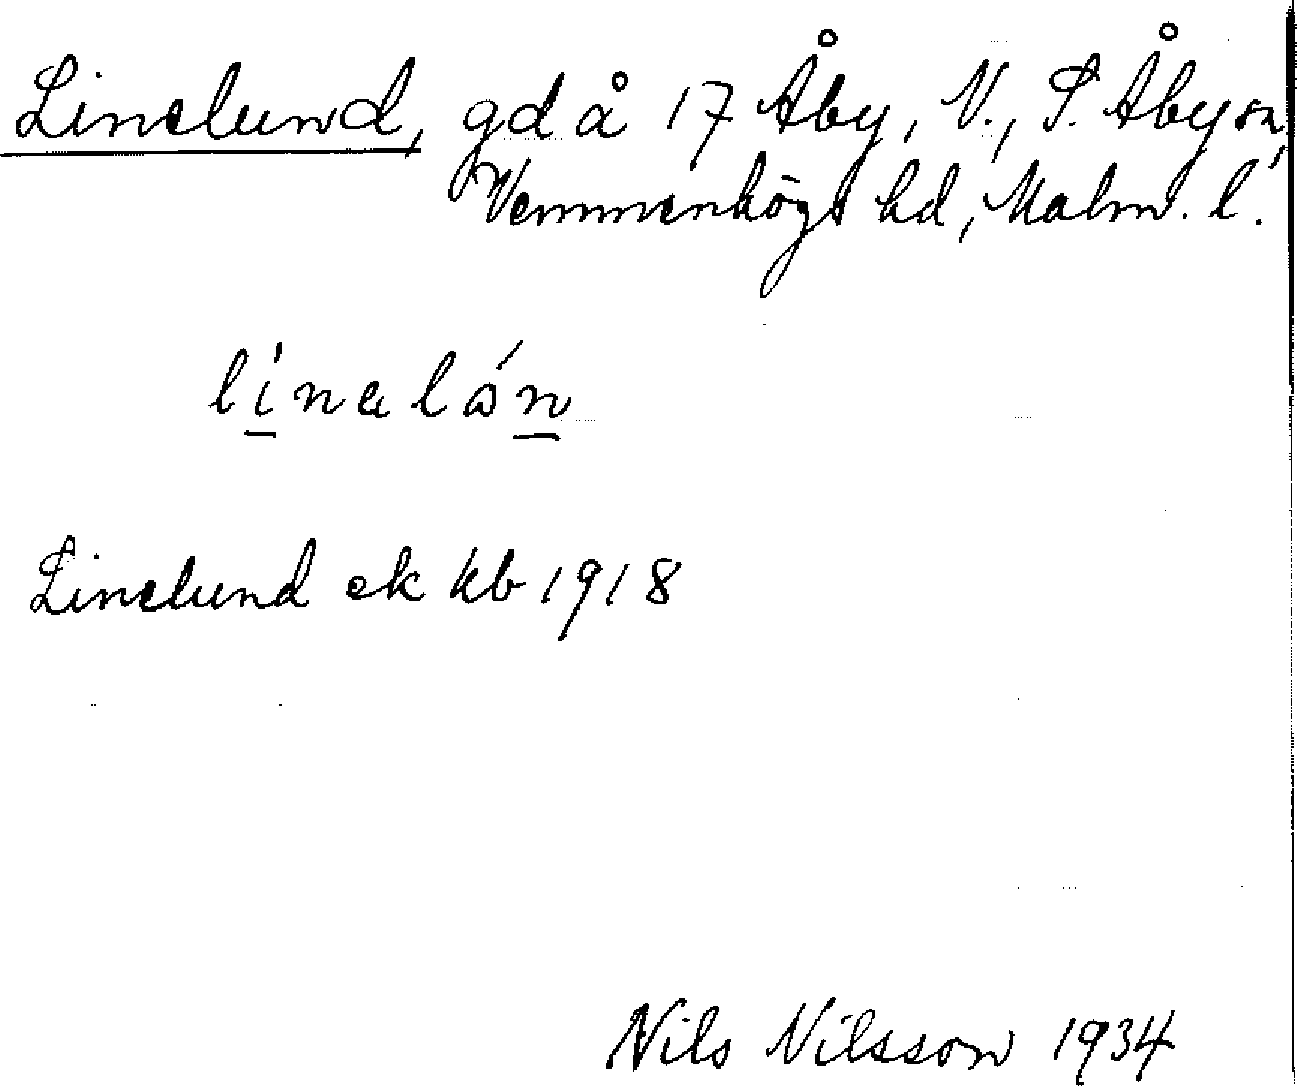 Linelund, gd å 17 Åby, V., S. Åby sn,
Vemmenhögs hd, Malm. l.
linalón
Linelund ek kb 1918
Nils Nilsson 1934